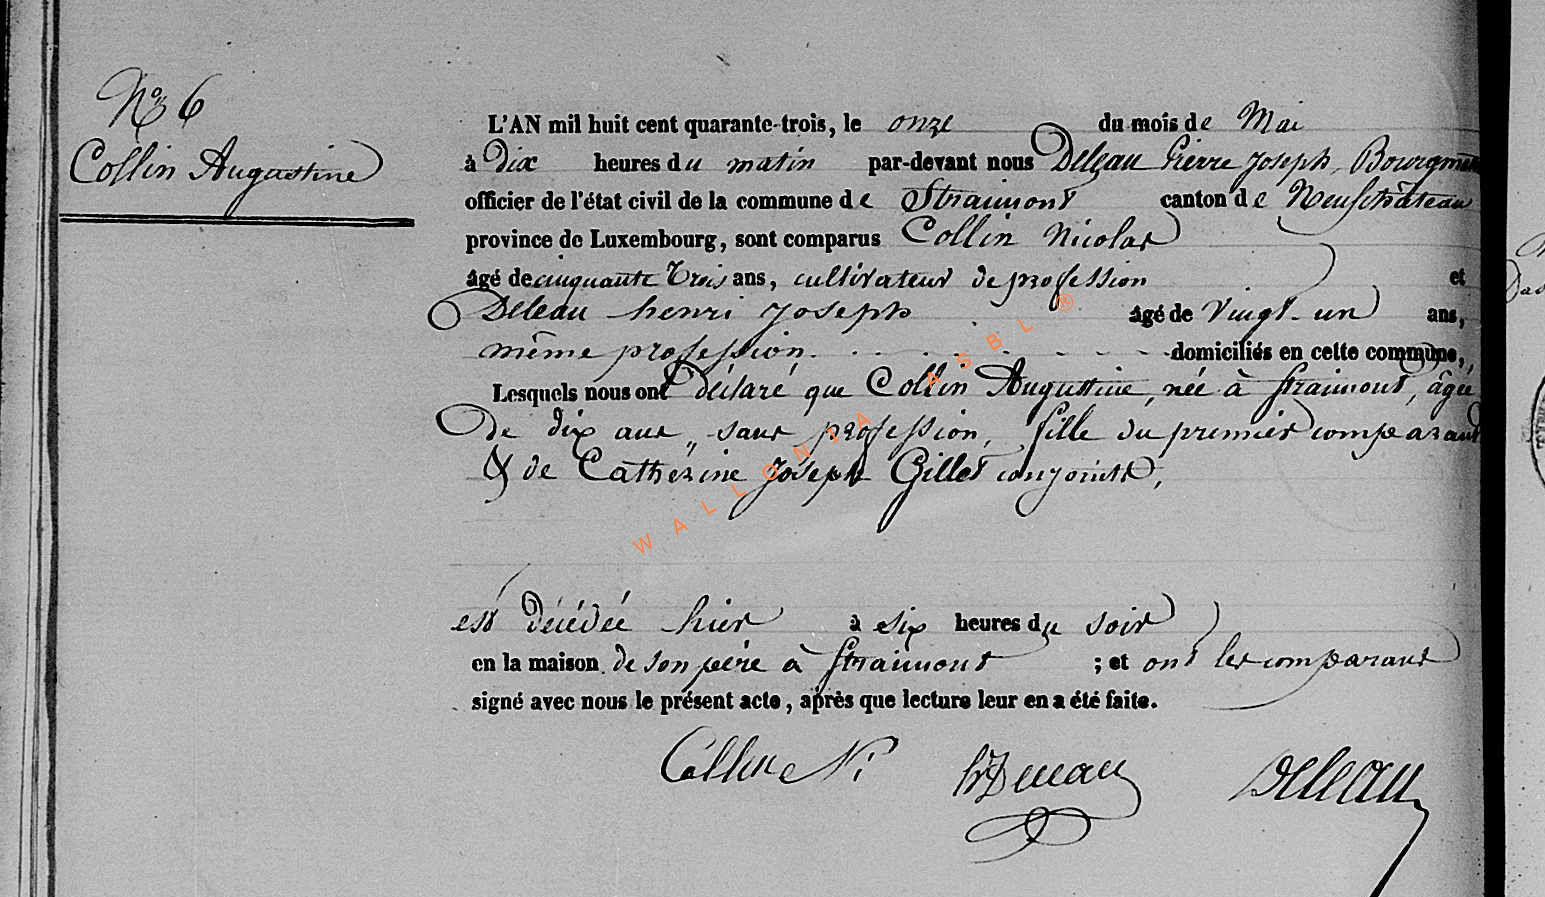 No 6
Collin Augustine
L'AN mil huit cent quarante-trois, le onze du mois de Mai
à dix heures du matin par-devant nous Deleau Pierre Joseph, Bourgm
officier de l'état civil de la commune de Straimont canton de Neufchâteau
province de Luxembourg, sont comparus Collin Nicolas
âgé de cinquante trois ans, cultivateur de profession et
Deleau henri Joseph âgé de vingt-un ans,
même profession. domiciliés en cette commune,
Lesquels nous ont déclaré que Collin Augustine, née à Straimont, âgée
de dix ans, sans profession, fille du premier comparant
& de Cathérine Joseph Gillet conjoints,
est décédée hier à six heures du soir
en la maison de son père à Straimont ; et ont les comparans
signé avec nous le présent acte, après que lecture leur en a été faite.
Collin Ni
Deleau
WALLONIA ASBL ®